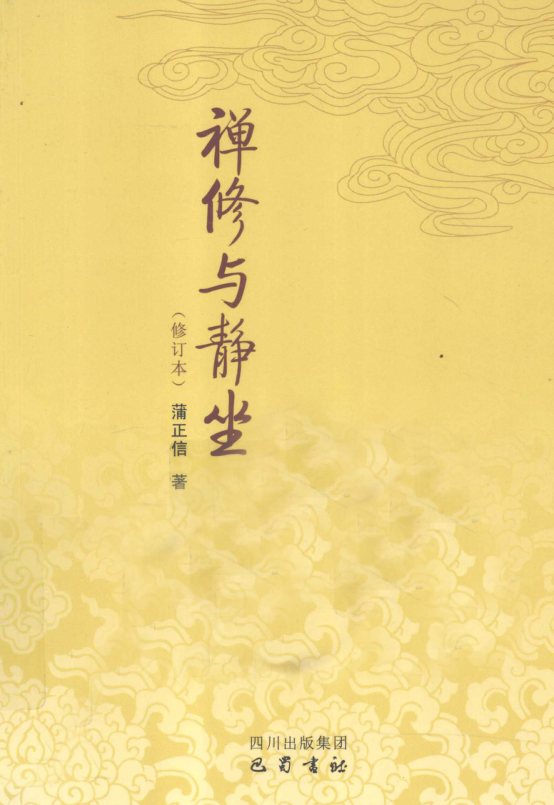 禅修与静坐
（修订本）
蒲正信 著
四川出版集团
巴蜀书社